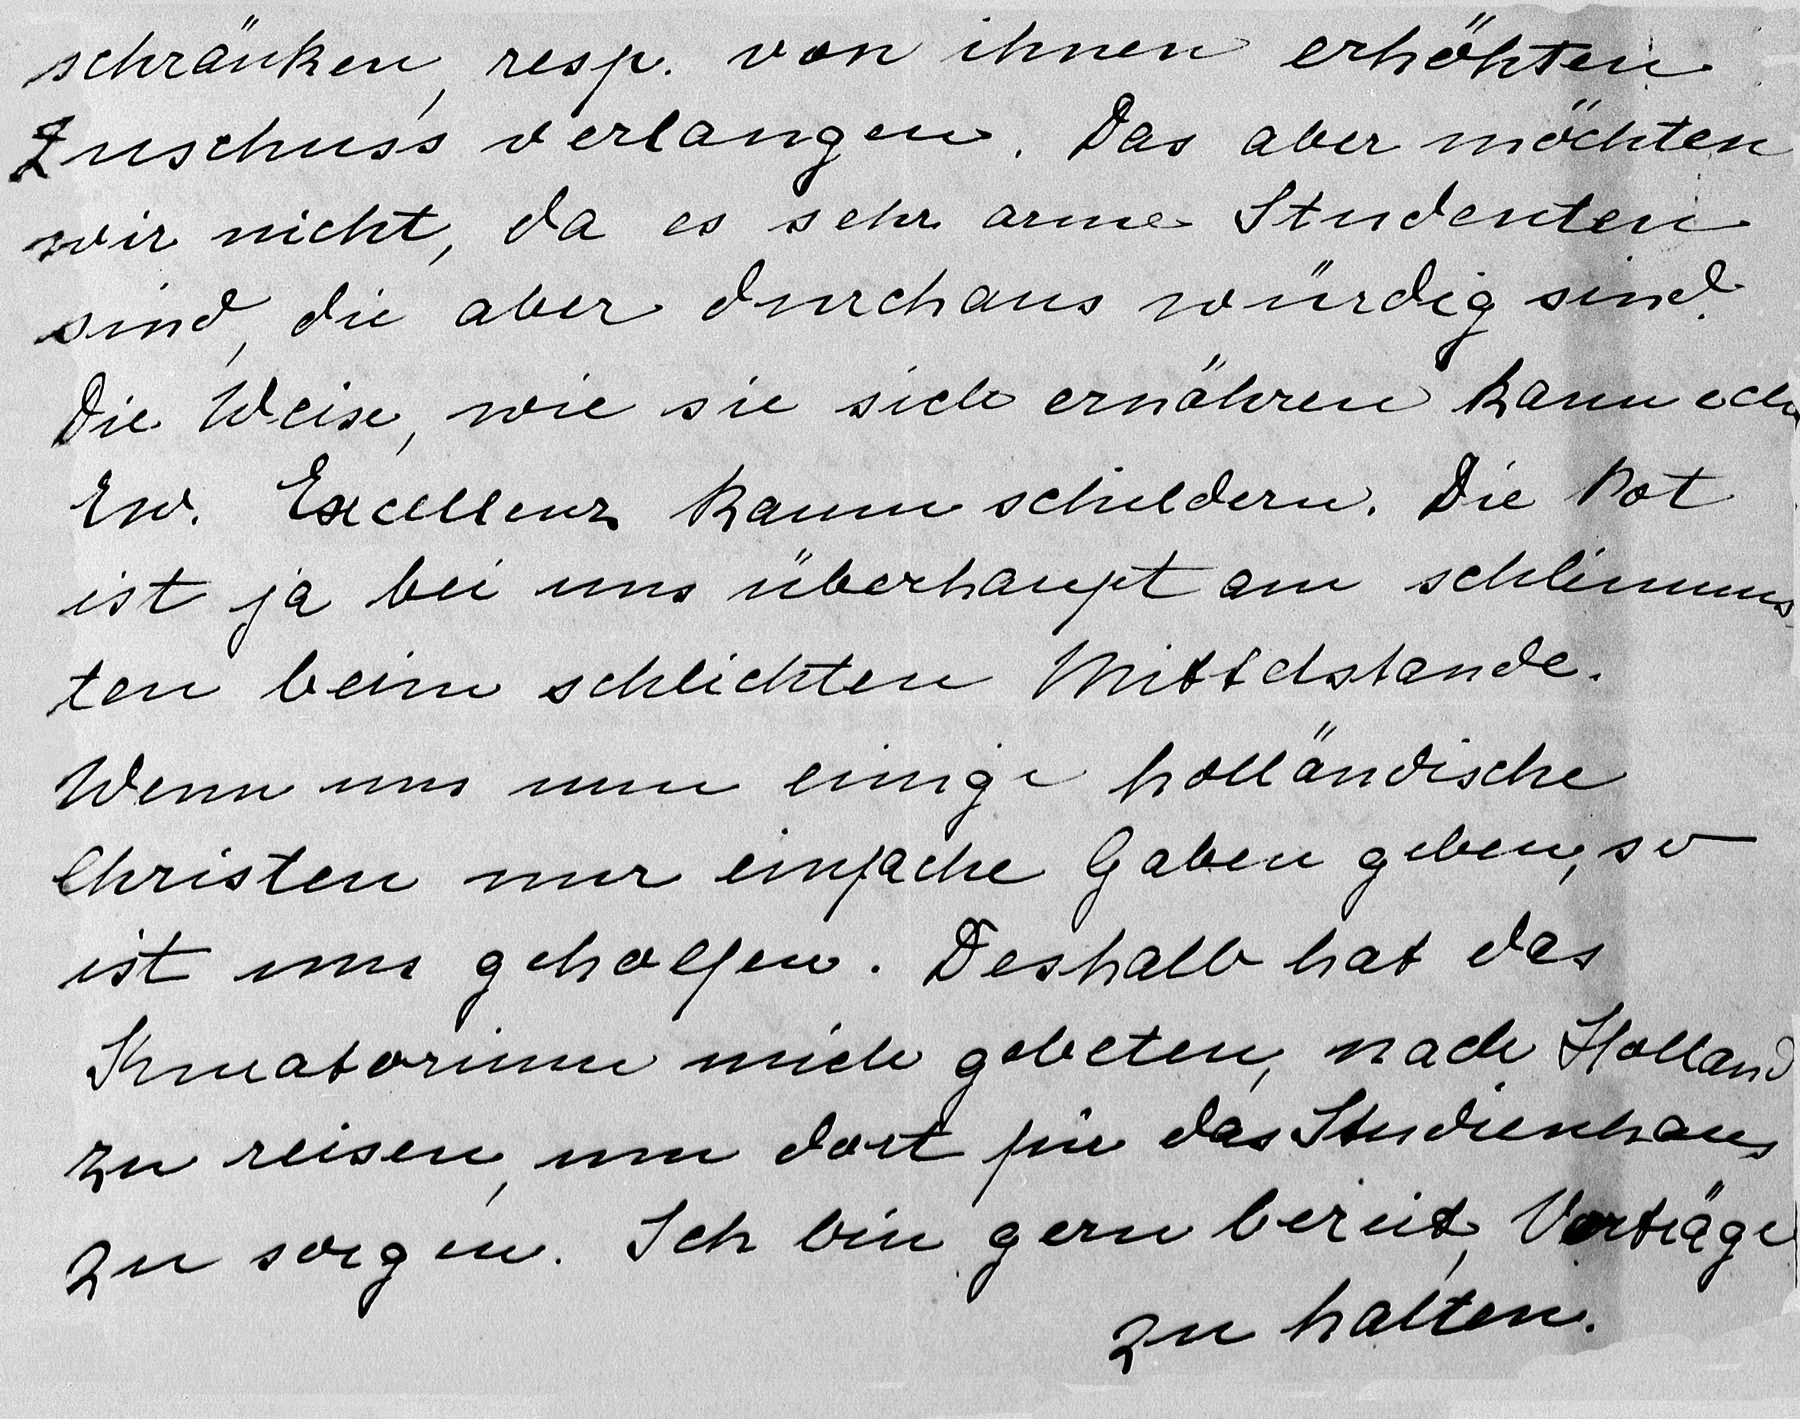 schränken, resp. von ihnen erhöhten
Zuschuss verlangen. Das aber möchten
wir nicht, da es sehr arme Studenten
sind, die aber durchaus würdig sind.
Die Weise, wie sie sich ernähren kann ich
Ew. Excellenz kaum schildern. Die Not
ist ja bei uns überhaupt am schlimms
ten beim schlichten Mittelstande.
Wenn uns nun einige holländische
Christen nur einfache Gaben geben, so
ist uns geholfen. Deshalb hat das
Kuratorium mich gebeten, nach Holland
zu reisen, um dort für das Studienhaus
zu sorgen. Ich bin gern bereit, Vorträge
zu halten.